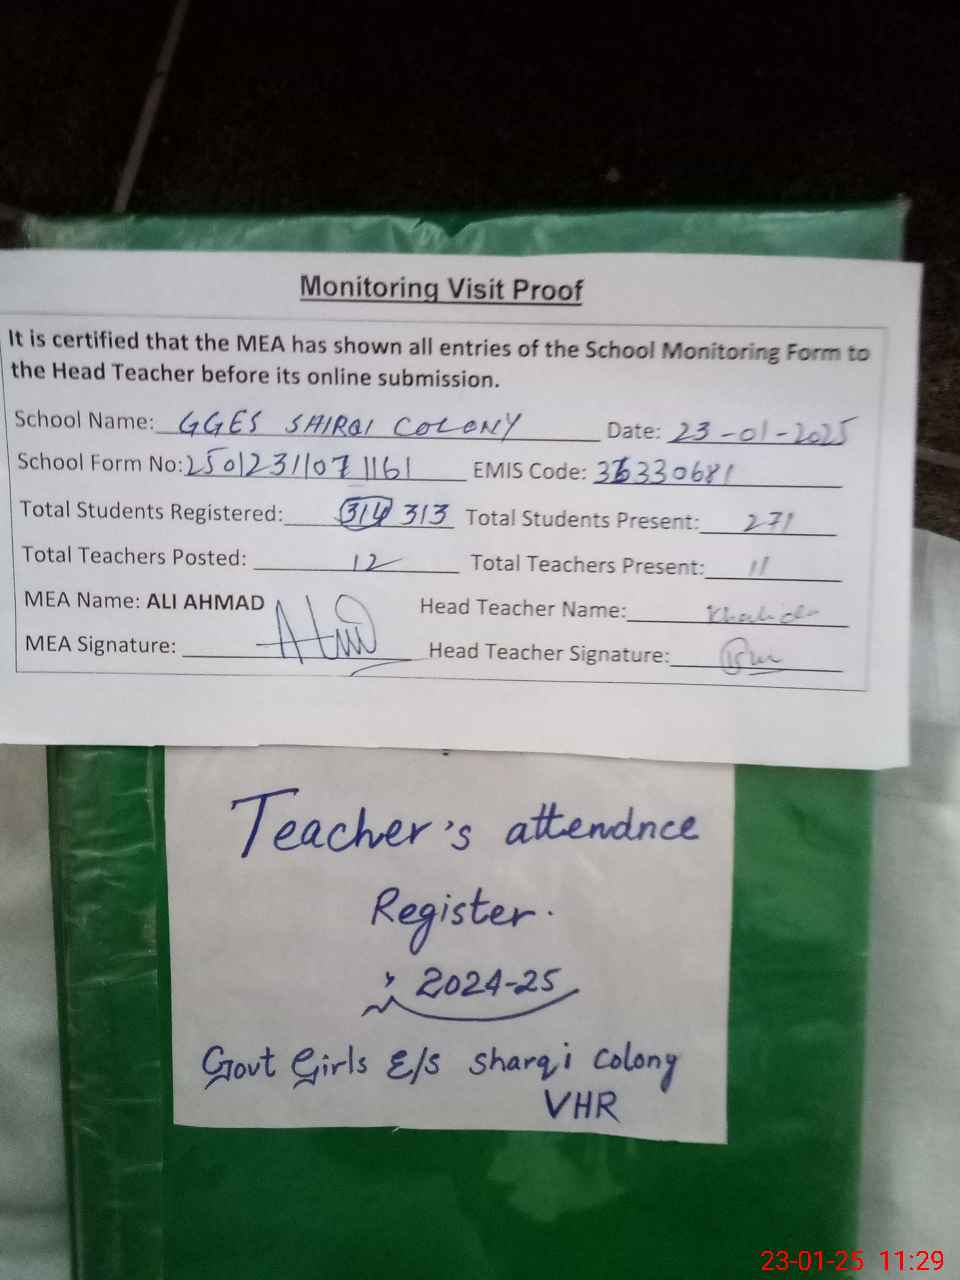 Monitoring Visit Proof
It is certified that the MEA has shown all entries of the School Monitoring Form to
the Head Teacher before its online submission.
School Name: GGES SHRQI COLONY Date: 23-01-2025
School Form No: 2501231107 1161 EMIS Code: 36330681
Total Students Registered: 314 313 Total Students Present: 271
Total Teachers Posted: 12 Total Teachers Present: 11
MEA Name: ALI AHMAD Head Teacher Name: Khalida
MEA Signature: Head Teacher Signature:
Teacher's attendnce
Register.
2024-25
Govt Girls E/S Sharqi Colony
VHR
23-01-25 11:29